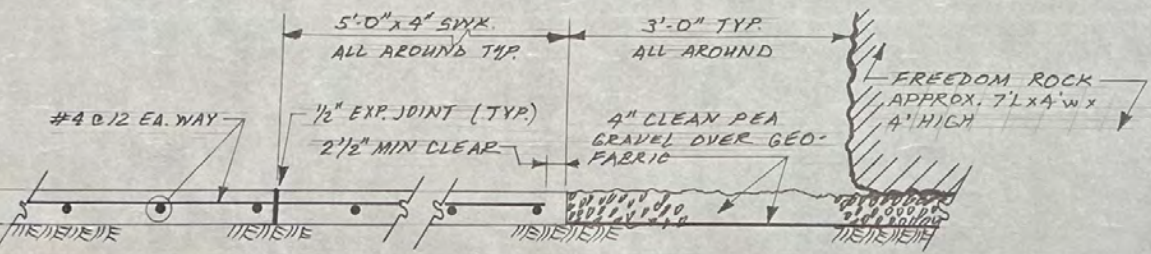 5'-0" x 4" SWK.
ALL AROUND TYP.
3'-0" TYP.
ALL AROUND
FREEDOM ROCK
APPROX. 7'L x 4'W x
4' HIGH
#4 @ 12 EA. WAY
1/2" EXP. JOINT (TYP.)
2 1/2" MIN CLEAR
4" CLEAN PEA
GRAVEL OVER GEO-
FABRIC